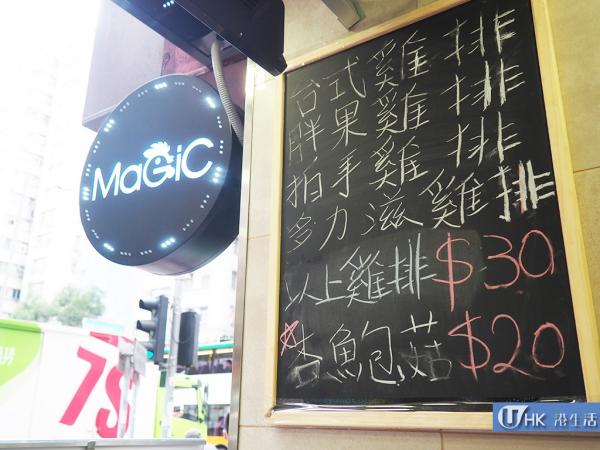 MaGiC
台式雞排
胖果雞排
拍手雞排
多力滋雞排
以上雞排$30
杏鮑菇$20
7S
U HK 港生活